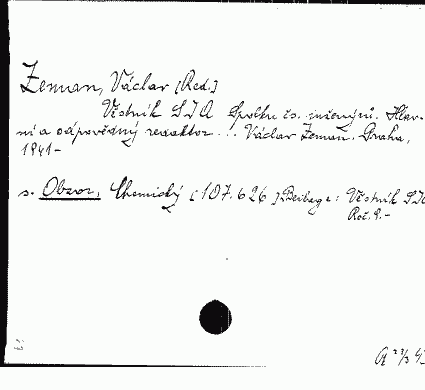 Zeman, Václav [Red.]
Věstník SIA Spolku čs. inženýrů. Hlav-
ní a odpovědný redaktor... Václav Zeman. Praha,
1941-
s. Obzor, Chemický [107.626] Beilage: Věstník SIA
Roč. 9.-